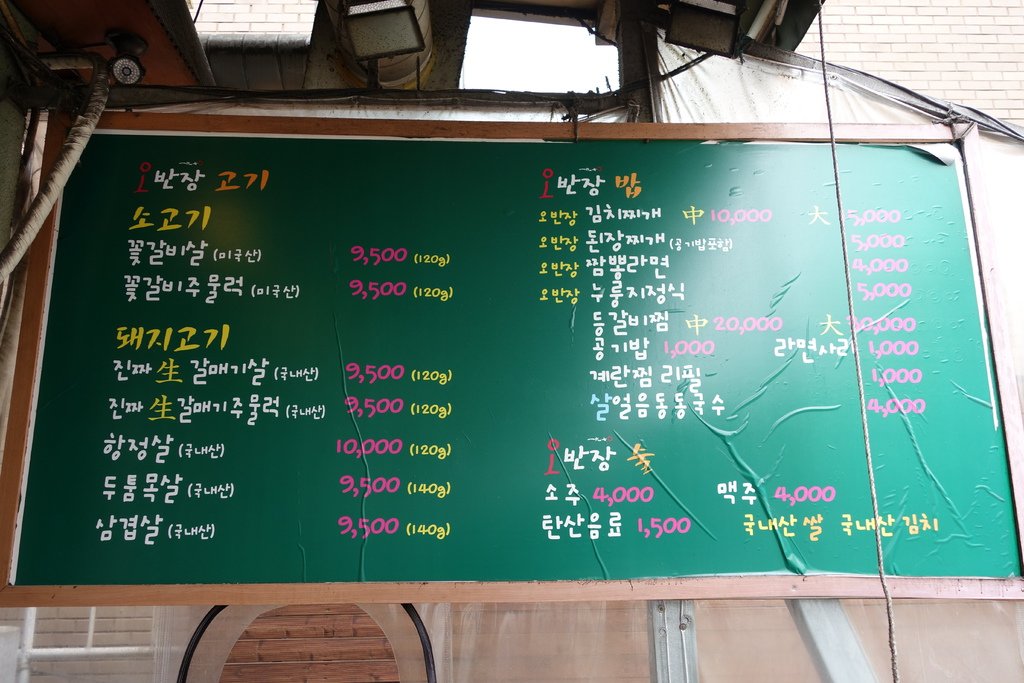 오반장 고기
소고기
꽃갈비살 (미국산) 9,500 (120g)
꽃갈비주물럭 (미국산) 9,500 (120g)
돼지고기
진짜 生 갈매기살 (국내산) 9,500 (120g)
진짜 生 갈매기주물럭 (국내산) 9,500 (120g)
항정살 (국내산) 10,000 (120g)
두툼목살 (국내산) 9,500 (140g)
삼겹살 (국내산) 9,500 (140g)
오반장 밥
오반장 김치찌개 中 10,000 大 5,000
오반장 된장찌개 (공기밥포함) 5,000
오반장 짬뽕라면 4,000
오반장 누룽지정식 5,000
등갈비찜 中 20,000 大 30,000
공기밥 1,000 라면사리 1,000
계란찜 리필 1,000
살얼음동동국수 4,000
오반장 술
소주 4,000 맥주 4,000
탄산음료 1,500 국내산 쌀 국내산 김치